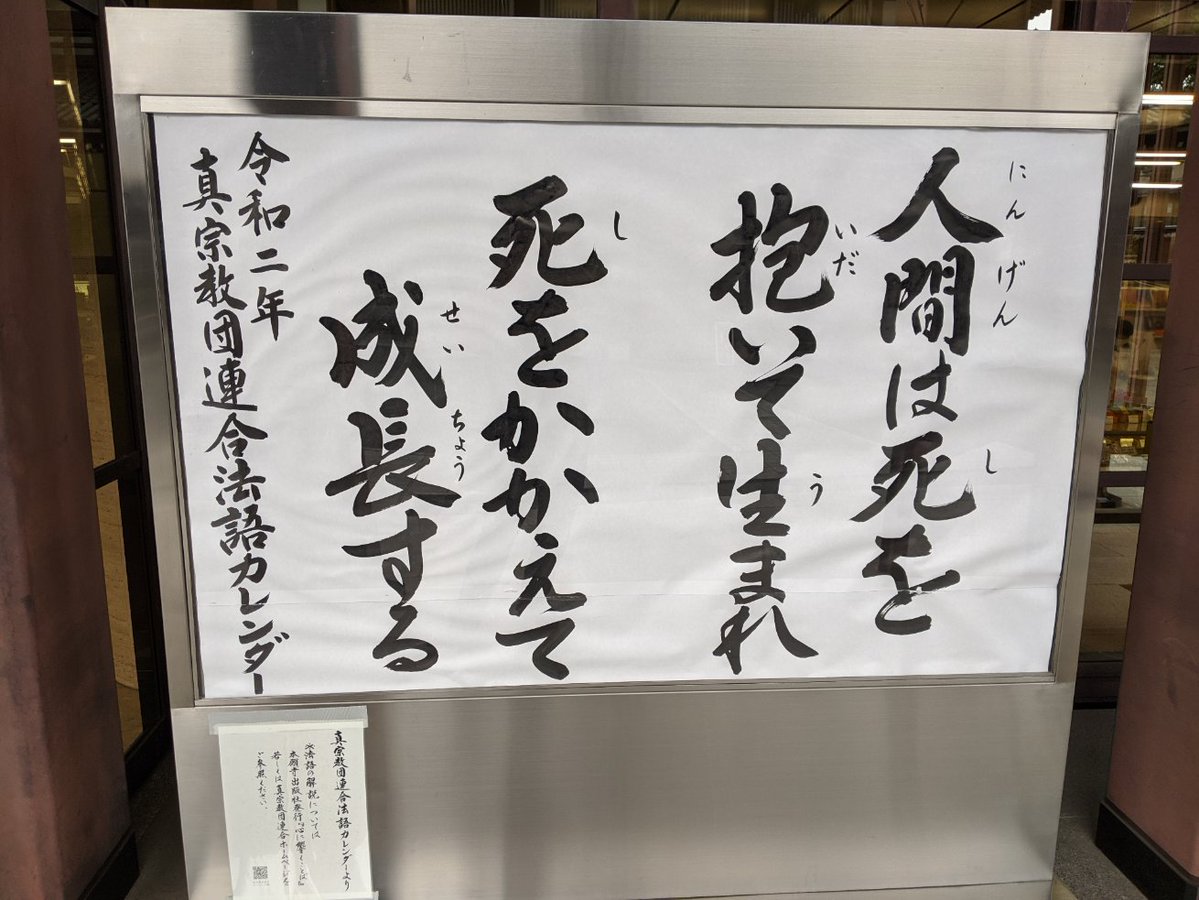 人間は死を
にんげん
し
抱いて生まれ
いだ
う
死をかかえて
し
成長する
せいちょう
令和二年
真宗教団連合法語カレンダー
真宗教団連合法語カレンダーより
※法語の解説については
本願寺出版社発行『心に響くことば』
若しくは真宗教団連合ホームページを
ご参照ください。